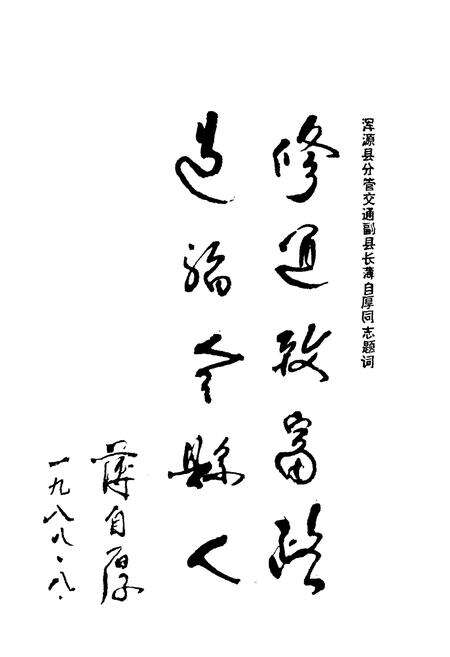 浑源县分管交通副县长薄自厚同志题词
修通致富路
造福全縣人
薄自厚
一九八八·八·